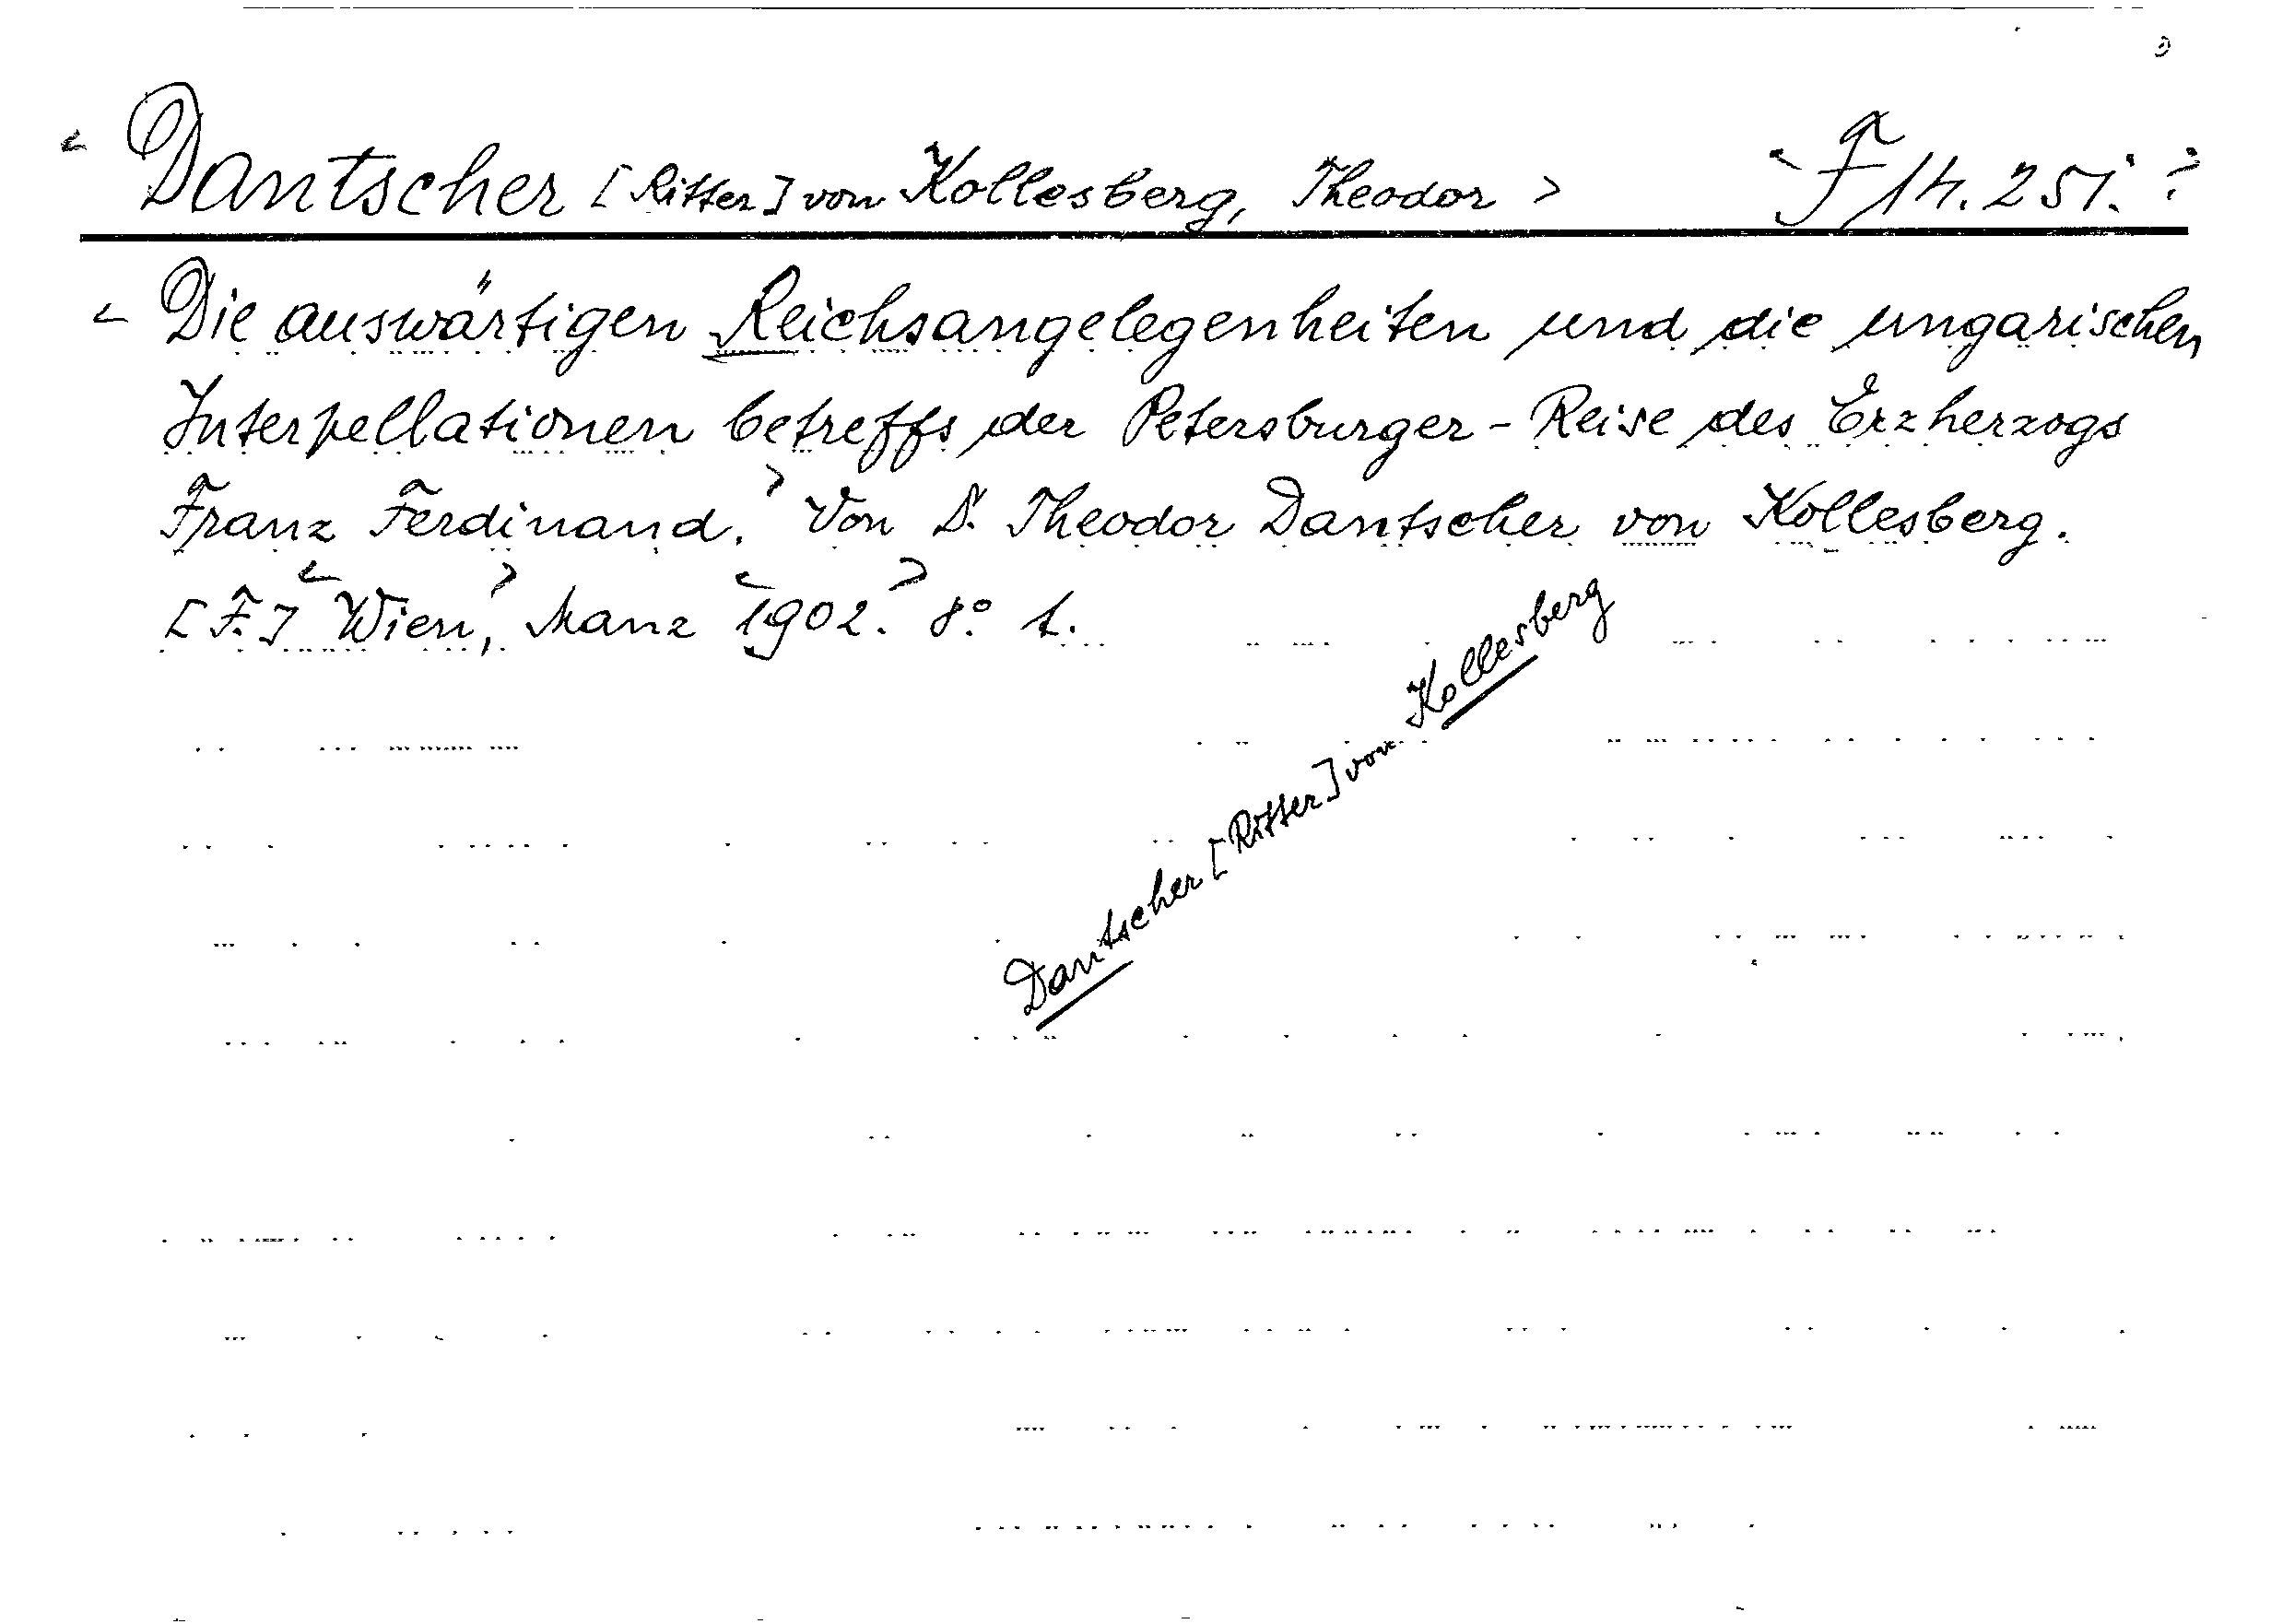 < Dantscher [Ritter] von Kollesberg, Theodor > < F 14.251. >
< Die auswärtigen Reichsangelegenheiten und die ungarischen
Interpellationen betreffs der Petersburger-Reise des Erzherzogs
Franz Ferdinand. > Von D. Theodor Dantscher von Kollesberg.
[F.] < Wien, > Manz < 1902. > 8° 1.
Dantscher [Ritter] von Kollesberg